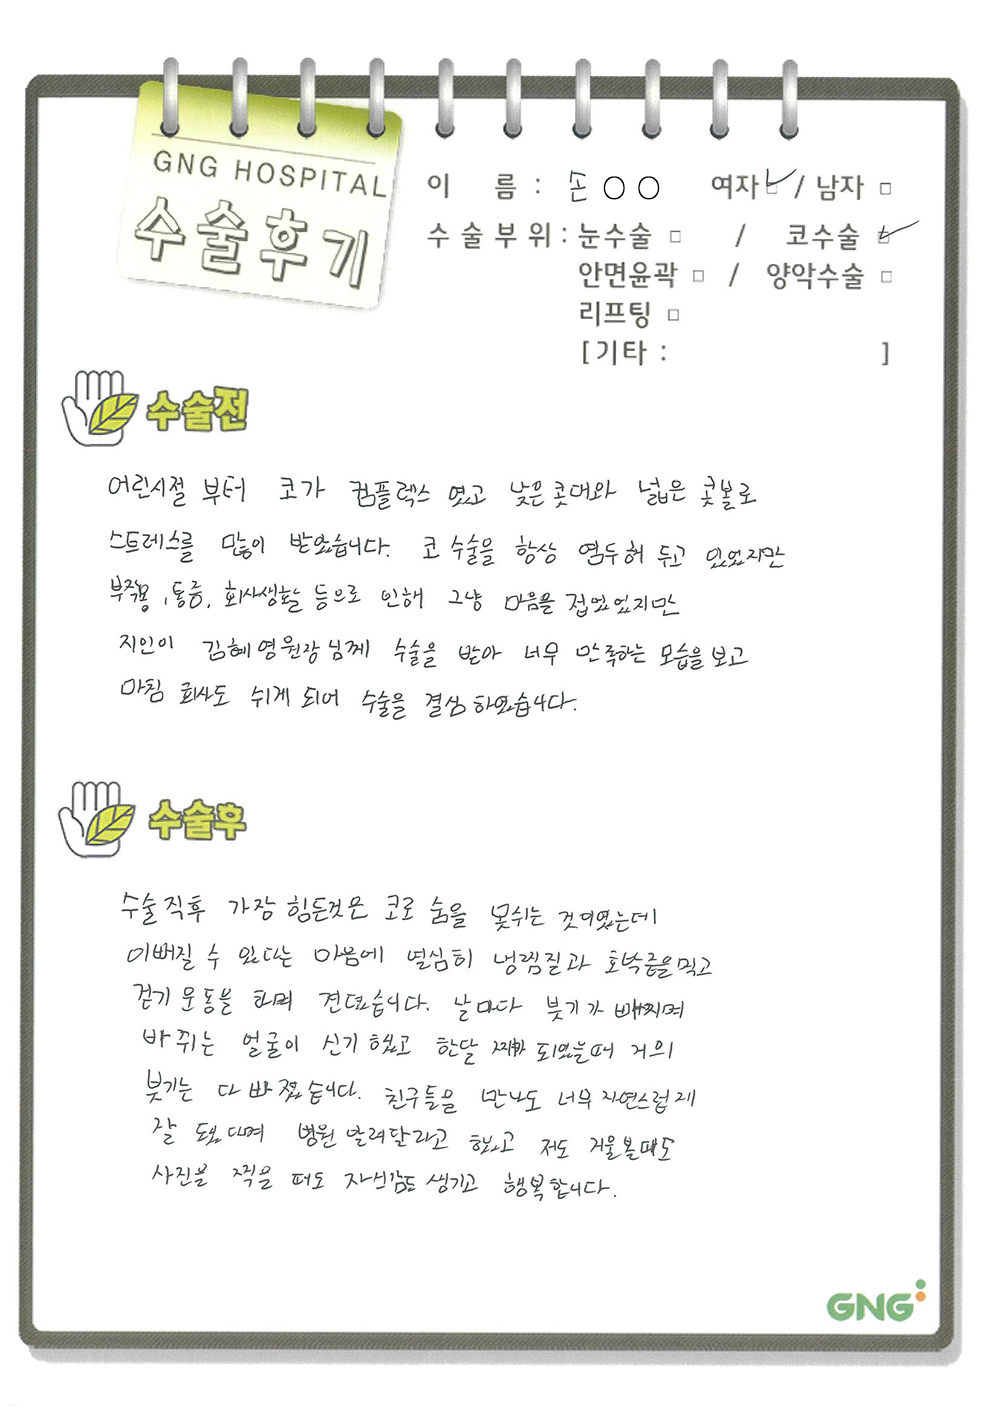 GNG HOSPITAL
수술후기
이 름 : 손○○ 여자 ☑ / 남자 □
수술부위 : 눈수술 □ / 코수술 ☑
안면윤곽 □ / 양악수술 □
리프팅 □
[기타 : ]
수술전
어린시절 부터 코가 컴플렉스 였고 낮은 콧대와 넓은 콧볼로
스트레스를 많이 받았습니다. 코 수술을 항상 염두해 두고 있었지만
부작용, 통증, 회사생활 등으로 인해 그냥 마음을 접었었지만
지인이 김혜영원장님께 수술을 받아 너무 만족하는 모습을 보고
마침 회사도 쉬게 되어 수술을 결심 하였습니다.
수술후
수술직후 가장 힘든것은 코로 숨을 못쉬는 것이였는데
이뻐질 수 있다는 마음에 열심히 냉찜질과 호박즙을먹고
걷기 운동을 하며 견뎠습니다. 날마다 붓기가 빠지며
바뀌는 얼굴이 신기했고 한달 째가 되었을때 거의
붓기는 다 빠졌습니다. 친구들을 만나도 너무 자연스럽게
잘 됐다며 병원 알려달라고 했고 저도 거울볼때도
사진을 찍을 때도 자신감도 생기고 행복합니다.
GNG